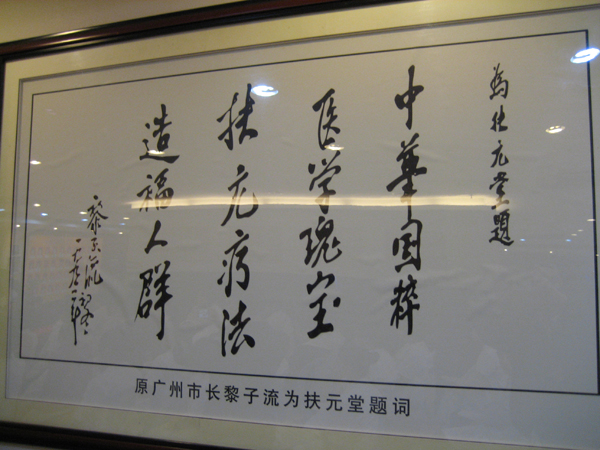 为扶元堂題
中華国粹
医学瑰宝
扶元疗法
造福人群
黎子流
原广州市长黎子流为扶元堂题词